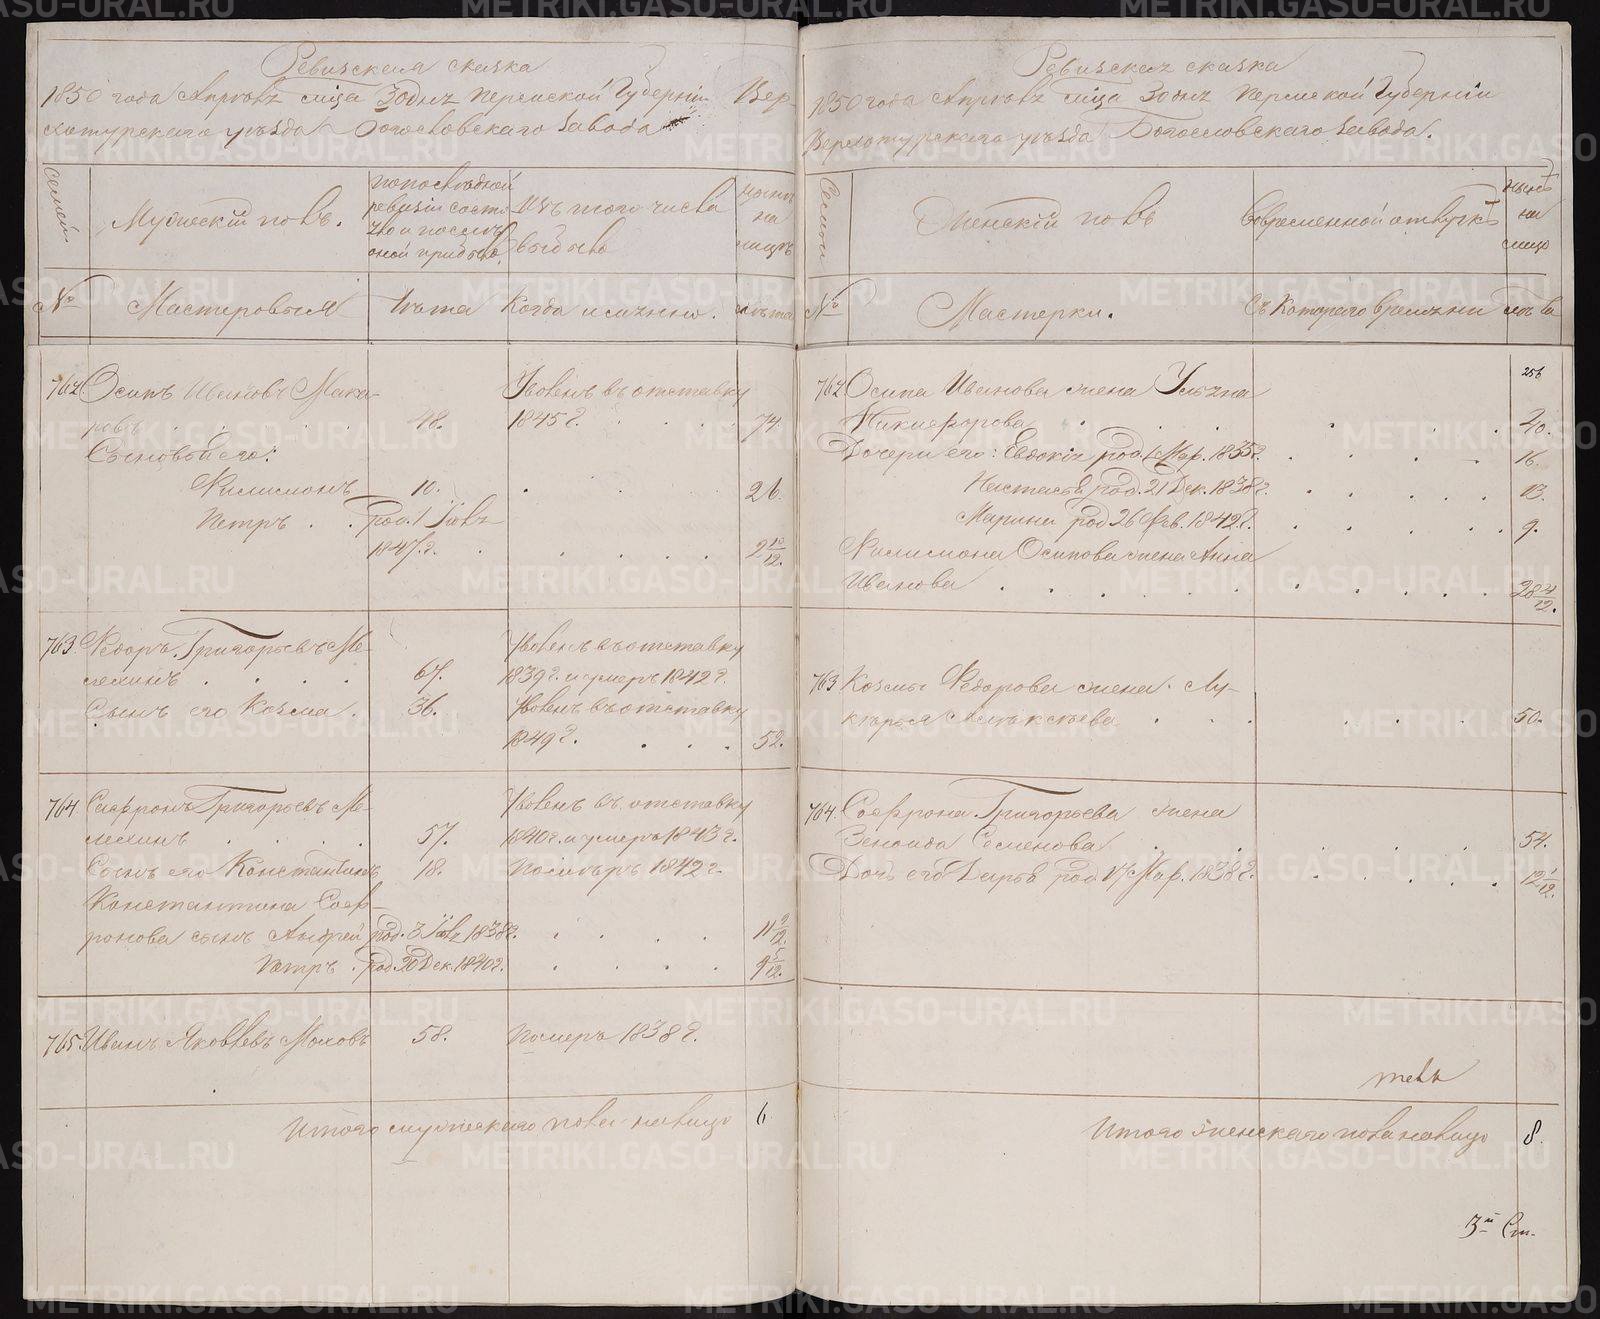 Ревизская сказка
1850 года Апреля мѣца 30 дня Пермской Губерніи Вер-
хотурскаго уѣзда Богословскаго завода
Семей
Мужескій полъ.
По последней
ревизіи состо
яло и послѣ
оной прибыло
Изъ того числа
выбыло
Нынѣ
на
лицѣ
№
Мастеровыя
Лѣта
Когда именно.
Лѣта
762 Осипъ Ивановъ Мака-
ровъ . . . 48.
Уволенъ въ отставку
1845 г. . . . 74
Сыновья его:
Филимонъ 10. . . . 26.
Петръ . . род. 1 Іюля
1847. г. . . . . . 2 10/12.
763. Федоръ Григорьевъ Ме-
лехинъ . . . . 67.
Уволенъ въ отставку
1839 г. и умеръ 1842 г.
Сынъ его Козма . 36.
Уволенъ въ отставку
1849 г. . . . 52.
764. Софронъ Григорьевъ Ме-
лехинъ . . . . 57.
Уволенъ въ отставку
1840 г. и умеръ 1843 г.
Сынъ его Константинъ 18. Померъ 1842 г.
Константина Соф-
ронова сынъ Андрей род. 3 Іюля 1838 г. . . . . 11 9/12.
Петръ . род. 20 Дек. 1840 г. . . . . 9 5/12.
765. Иванъ Яковлевъ Моховъ 58. Померъ 1838 г.
Итого мужескаго пола на лицо 6
Ревизская сказка
1850 года Апреля мѣца 30 дня Пермской Губерніи
Верхотурскаго уѣзда Богословскаго завода.
Семей
Женскій полъ
Во временной отлучкѣ
Нынѣ
на
лицо
№
Мастерки.
Съ котораго времени
Лѣта
256
762 Осипа Иванова жена Ульяна
Никифорова . . . . . 40.
Дочери его: Евдокія род. 1 Мар. 1835 г. . . . . 16.
Настасья род. 21 Дек. 1838 г. . . . . 13.
Марина род 26 Фев. 1842 г. . . . . 9.
Филимона Осипова жена Анна
Иванова . . . . . . . 28 4/12.
763 Козмы Федорова жена Лу-
керья Алексѣева . . . . . . 50.
764. Софрона Григорьева жена
Зеноида Семенова . . . . . 54.
Дочь его Дарья род. 17 Мар. 1838 г. . . . . 12 1/12.
Итого женскаго пола на лицо 8.
3й Ст.